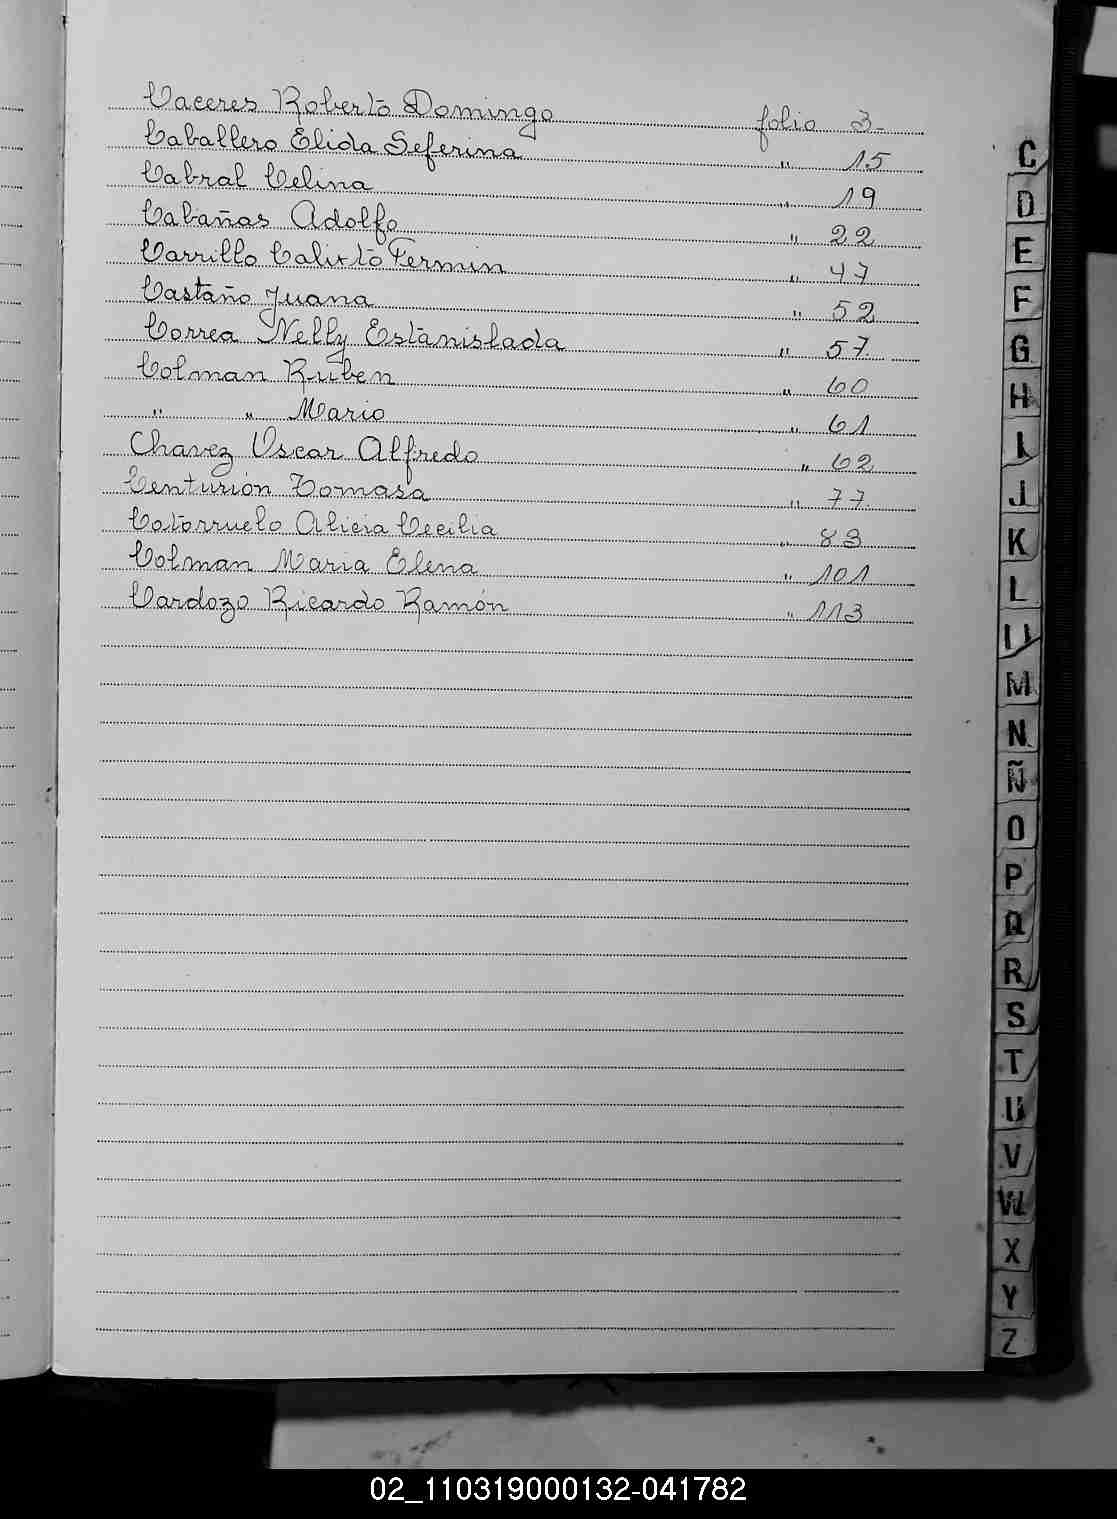 Caceres Roberto Domingo folio 3-
Caballero Elida Seferina " 15
Cabral Celina " 19
Cabañas Adolfo " 22
Carrillo Calixto Fermin " 47
Castaño Juana " 52
Correa Nelly Estanislada " 57
Colman Ruben " 60
" " Mario " 61
Chavez Oscar Alfredo " 62
Centurión Tomasa " 77
Cotorruelo Alicia Cecilia " 83
Colman Maria Elena " 101
Cardozo Ricardo Ramón " 113
C
D
E
F
G
H
I
J
K
L
LL
M
N
Ñ
O
P
Q
R
S
T
U
V
W
X
Y
Z
02_110319000132-041782